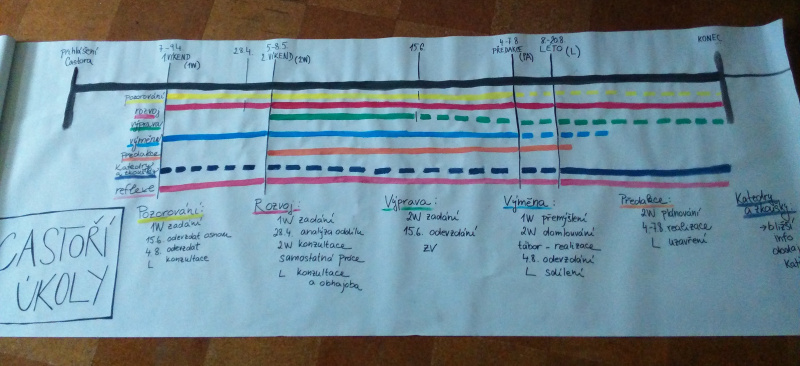 Přihlášení
Častora
7-9.4.
1VÍKEND
(1W)
28.4.
5-8.5.
2 VÍKEND (2W)
15.6.
4-7.8
PŘEDAKCE
8-20.8.
LÉTO (L)
KONEC
Pozorování
rozvoj
výprava
výměna
předakce
Katedry
reflexe
CASTOŘÍ
ÚKOLY
Pozorování:
1W zadání
15.6. odevzdat osnovu
4.8. odevzdat
L konzultace
Rozvoj:
1W zadání
28.4. analýza oddílu
2W konzultace
samostatná práce
L konzultace
a obhajoba
Výprava:
2W zadání
15.6. odevzdání
ZV
Výměna:
1W přemýšlení
2W domlouvání
tábor - realizace
4.8. odevzdání
L sdílení
Předakce:
2W plánování
4-7.8 realizace
L uzavření
Katedry
a zkoušky:
→ bližší
info